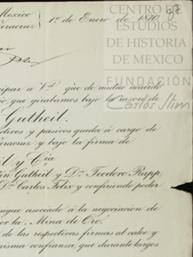 Mexico
Veracruz
1º de Enero de 1870
CENTRO DE
ESTUDIOS
DE HISTORIA
DE MEXICO
FUNDACIÓN
Carlos Slim
cipar a Vd. que de mutuo acuerdo
que girabamos bajo la razon de
Gutheil.
activos y pasivos queda a cargo de
Veracruz y bajo la firma de
l y Cia
Gutheil y Dn. Teodoro Rupp,
Dn. Carlos Felix y confiriendo poder
asociado á la negociacion de
por la Mina de Oro.
de las respectivas firmas al calce y
misma confianza, que durante largos